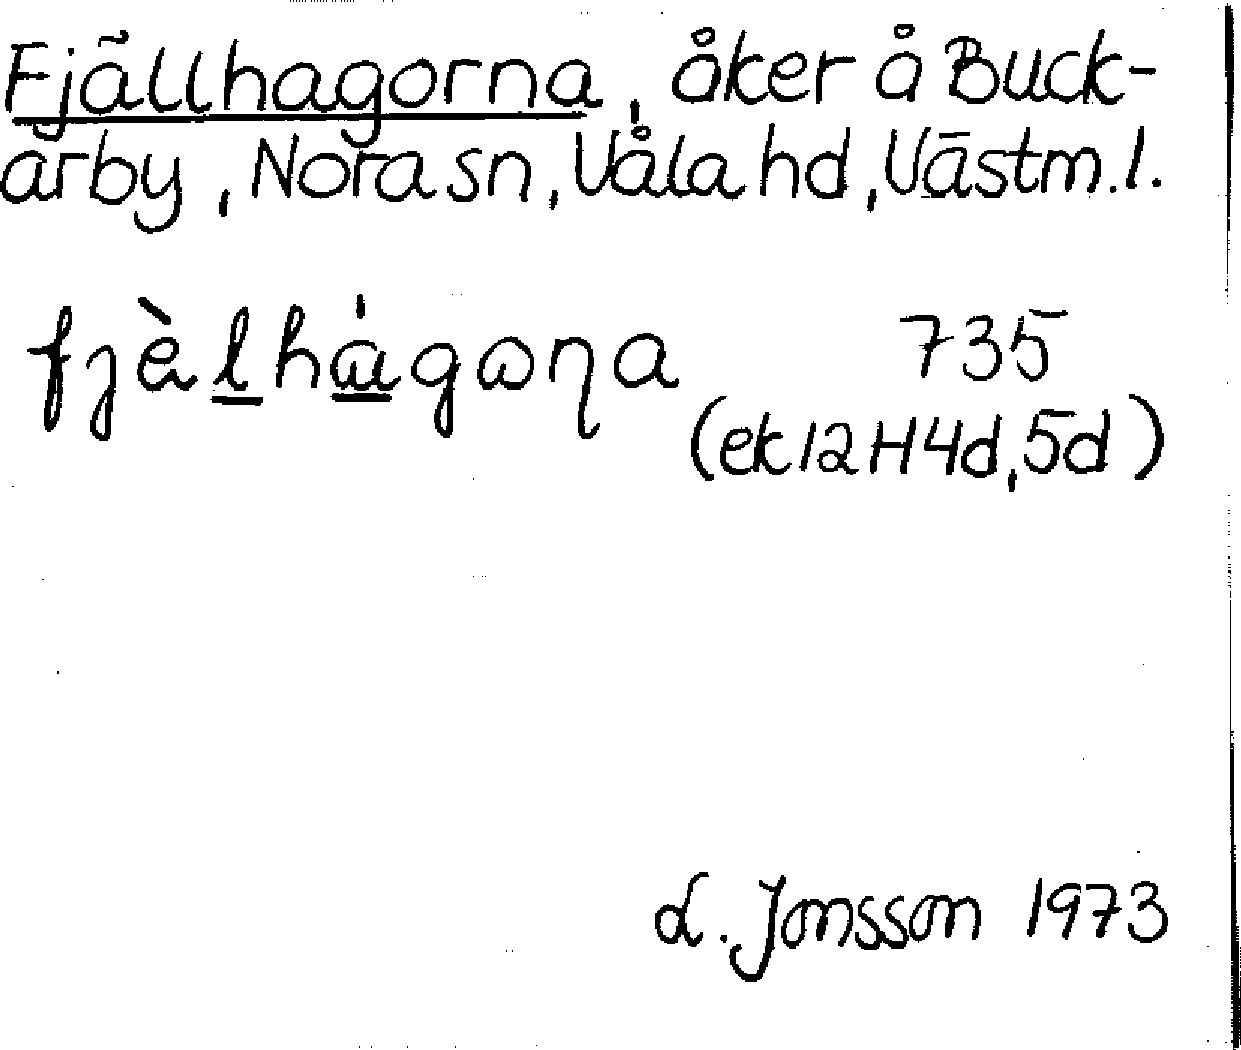 Fjällhagorna, åker å Buck-
arby, Nora sn, Våla hd, Västm.l.
fjèlhágaṇa 735
(ek 12H4d,5d)
L. Jonsson 1973